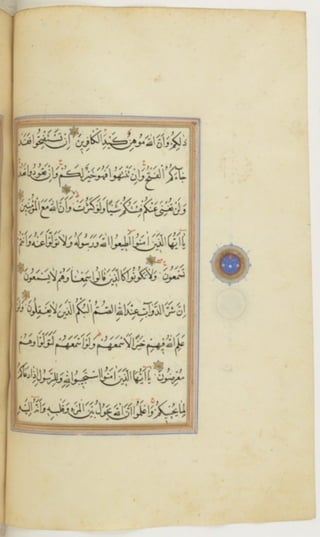 ذلكم وأن الله موهن كيد الكافرين إن تستفتحوا فقد
جاءكم الفتح وإن تنتهوا فهو خير لكم وإن تعودوا نعد
ولن تغني عنكم فئتكم شيئا ولو كثرت وأن الله مع المؤمنين
يا أيها الذين آمنوا أطيعوا الله ورسوله ولا تولوا عنه وأنتم
تسمعون ولا تكونوا كالذين قالوا سمعنا وهم لا يسمعون
إن شر الدواب عند الله الصم البكم الذين لا يعقلون ولو
علم الله فيهم خيرا لأسمعهم ولو أسمعهم لتولوا وهم
معرضون يا أيها الذين آمنوا استجيبوا لله وللرسول إذا دعاكم
لما يحييكم واعلموا أن الله يحول بين المرء وقلبه وأنه إليه